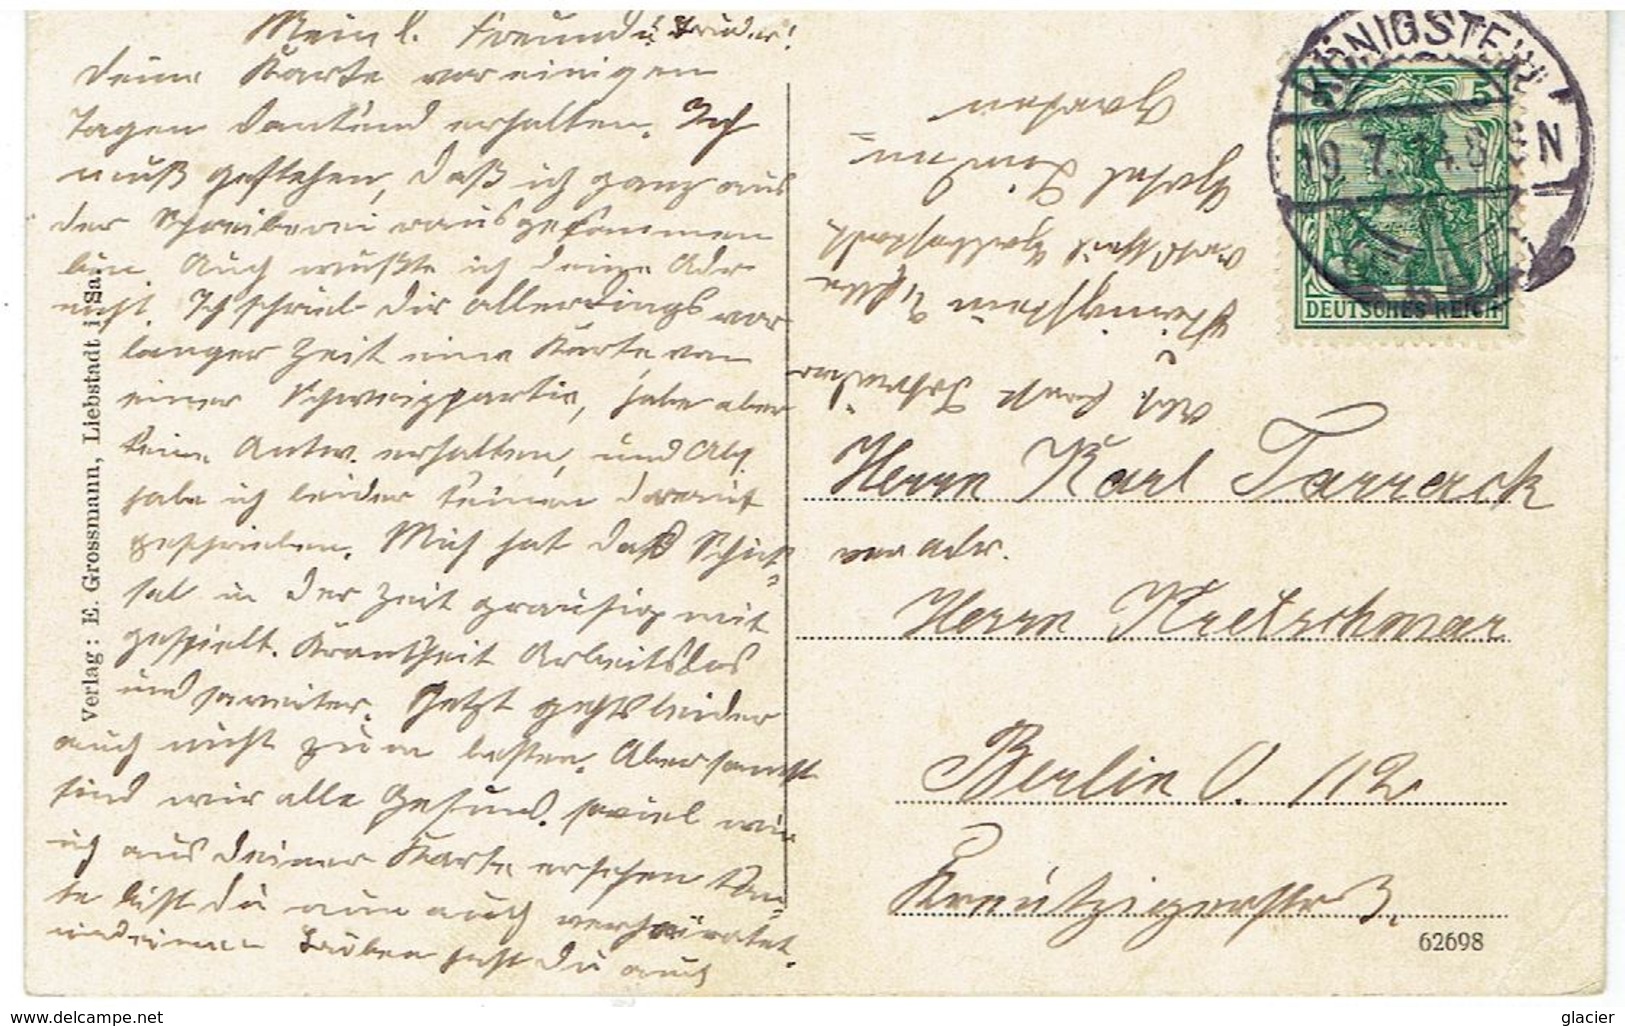 Mein l. Freund u. Bruder!
Deine Karte vor einigen
Tagen dankend erhalten. Ich
muß gestehen, daß ich ganz aus
der Schreiberei rausgekommen
bin. Auch wußte ich deine Adr
nicht. Ich schrieb dir allerdings vor
langer Zeit eine Karte, von
einer Schweizpartie, habe aber
keine Antw. erhalten, und
habe ich leider keinen
geschrieben. Mich hat daß Schick-
sal in der Zeit grausig mit
gespielt. Krankheit Arbeitslos
und so weiter. Jetzt gehts leider
auch nicht zum besten. Aber sonst
sind wir alle Gesund. soviel wie
ich aus deiner Karte ersehen kon-
te bist du nun auch verheiratet.
und einen Buben hast du auch
Verlag: E. Grossmann, Liebstadt i. Sa.
KÖNIGSTEIN
19.7.14. 8-9 N
5 5
DEUTSCHES REICH
Abs.
Königstein Elbe
Hotel
Garten
Herrn Karl Tarrack
per Adr.
Herrn Kretschmar
Berlin O. 112
Kreutzigerstr 3.
62698
www.delcampe.net
glacier